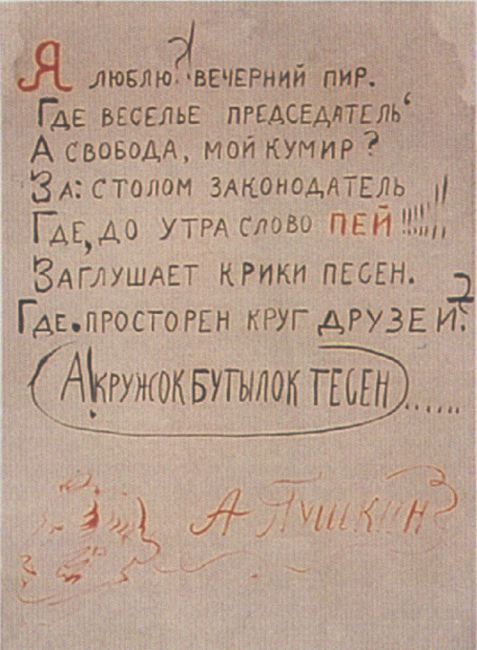 Я ЛЮБЛЮ? ВЕЧЕРНИЙ ПИР.
ГДЕ ВЕСЕЛЬЕ ПРЕДСЕДАТЕЛЬ‘
А СВОБОДА, МОЙ КУМИР?
ЗА: СТОЛОМ ЗАКОНОДАТЕЛЬ
ГДЕ, ДО УТРА СЛОВО ПЕЙ!!!!!!
ЗАГЛУШАЕТ КРИКИ ПЕСЕН.
ГДЕ. ПРОСТОРЕН КРУГ ДРУЗЕЙ?
А! КРУЖОК БУТЫЛОК ТЕСЕН......
А Пушкин